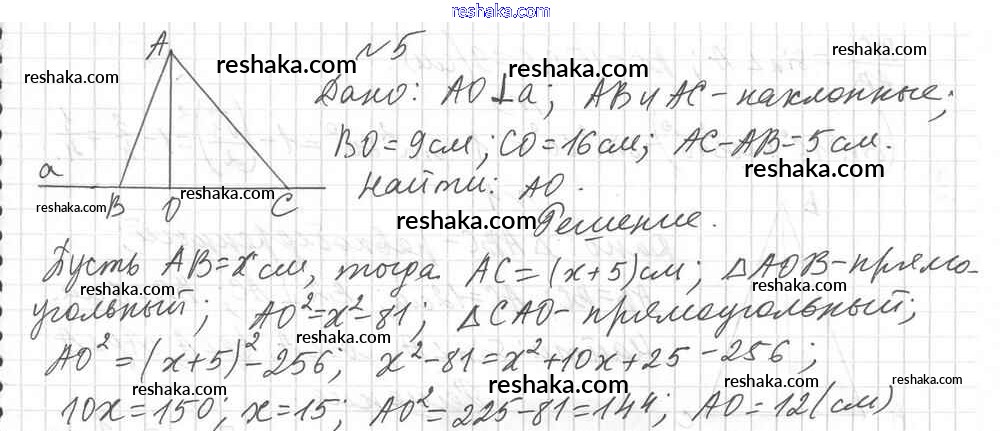 reshaka.com
A
№5
reshaka.com reshaka.com reshaka.com
Дано: AO⊥a; AB и AC - наклонные;
reshaka.com
BO=9см; CO=16см; AC-AB=5см.
a
reshaka.com
reshaka.com
Найти: AO.
reshaka.com B O C
reshaka.com
Решение.
Пусть AB=x см, тогда AC=(x+5)см; △AOB-прямо-
reshaka.com reshaka.com
угольный; AO²=x²-81; △CAO-прямоугольный;
reshaka.com
AO²=(x+5)²-256; x²-81=x²+10x+25-256;
reshaka.com reshaka.com reshaka.com reshaka.com
10x=150; x=15; AO²=225-81=144; AO=12(см)